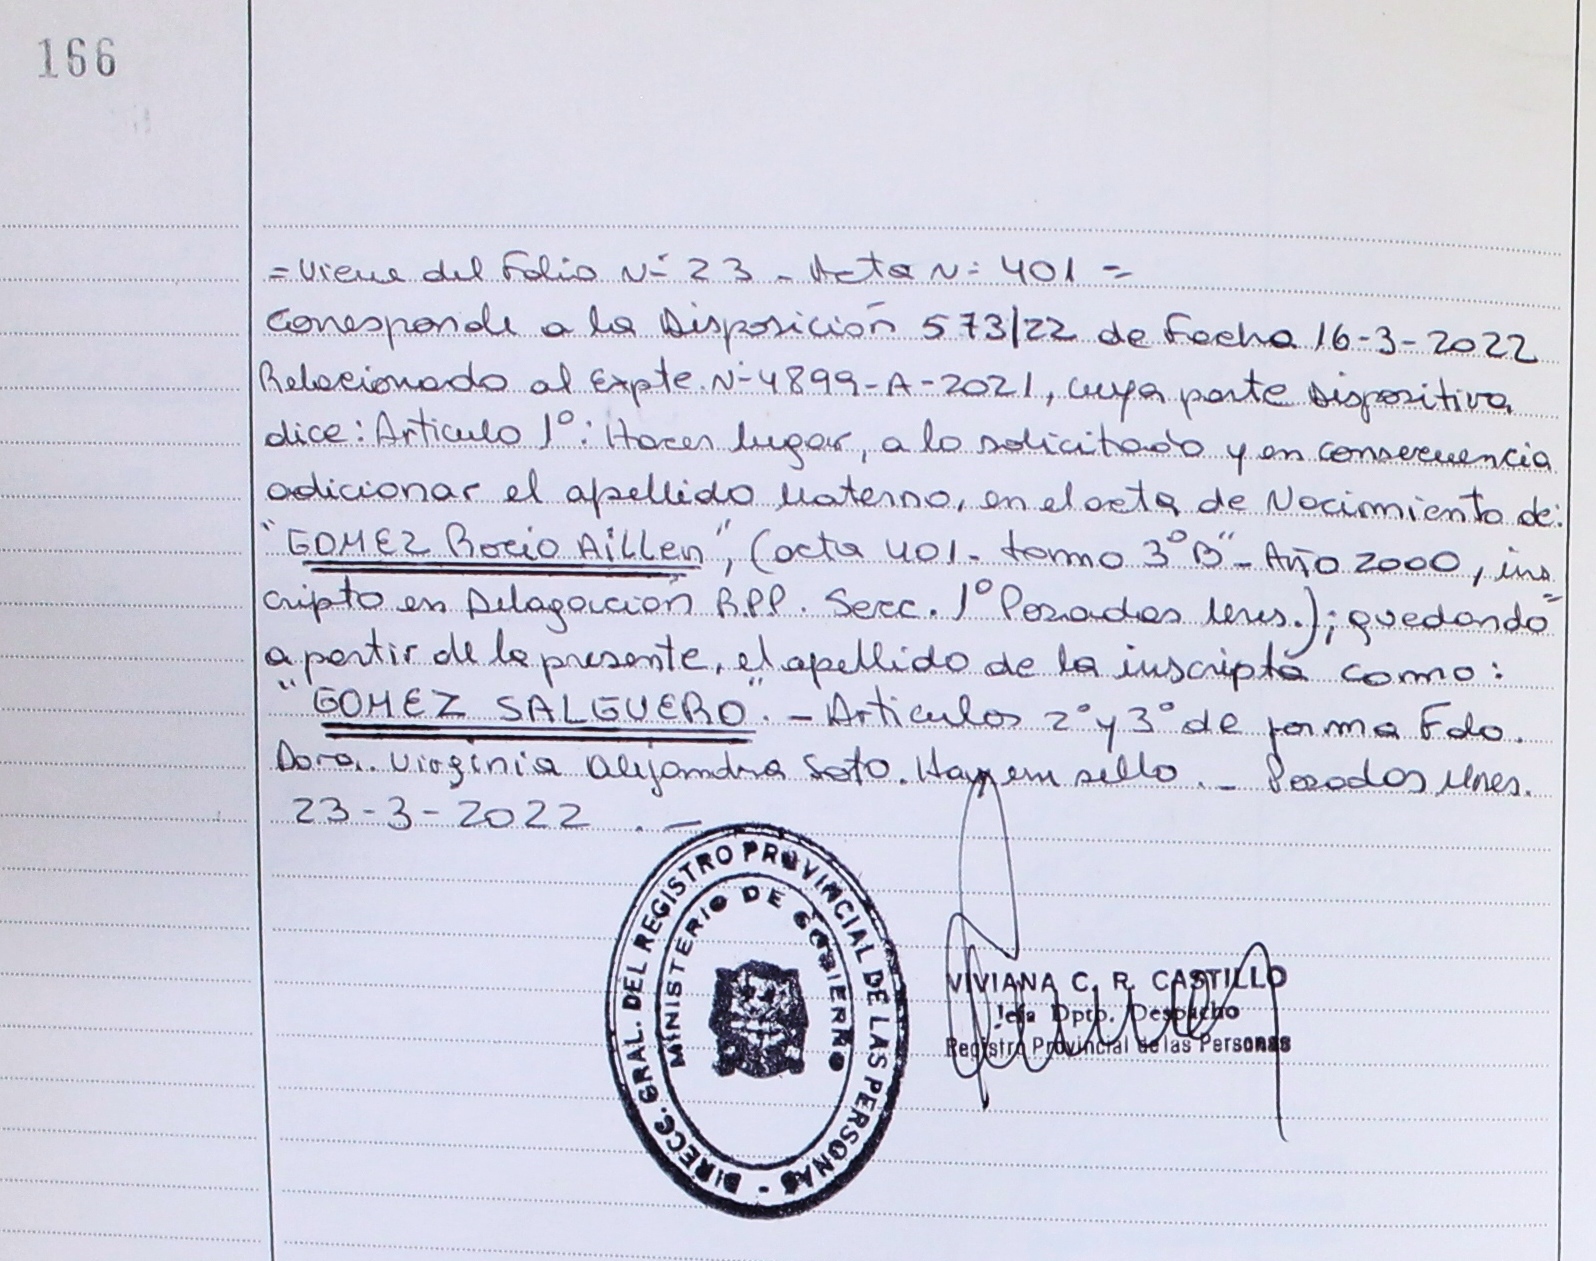 166
= Viene del Folio Nº 23 - Acta Nº 401 =
Corresponde a la Disposición 573/22 de Fecha 16-3-2022
Relacionado al Expte. Nº 4899-A-2021, cuya parte Dispositiva
dice: Artículo 1º: Hacer lugar, a lo solicitado y en consecuencia
adicionar el apellido Materno, en el acta de Nacimiento de:
"GOMEZ Rocio AiLLen", (acta 401 - tomo 3º B" - Año 2000, ins
cripto en Delegación R.P.P. Secc. 1º Posadas Mnes.); quedando
a partir de la presente, el apellido de la inscripta como:
"GOMEZ SALGUERO". - Articulos 2º y 3º de forma Fdo.
Dora. Virginia Alejandra Soto. Hay em sello. - Posadas Mnes.
23-3-2022 . -
DIRECC. GRAL. DEL REGISTRO PROVINCIAL DE LAS PERSONAS -
MINISTERIO DE GOBIERNO
VIVIANA C. R. CASTILLO
Jefa Dpto. Despacho
Registro Provincial de las Personas